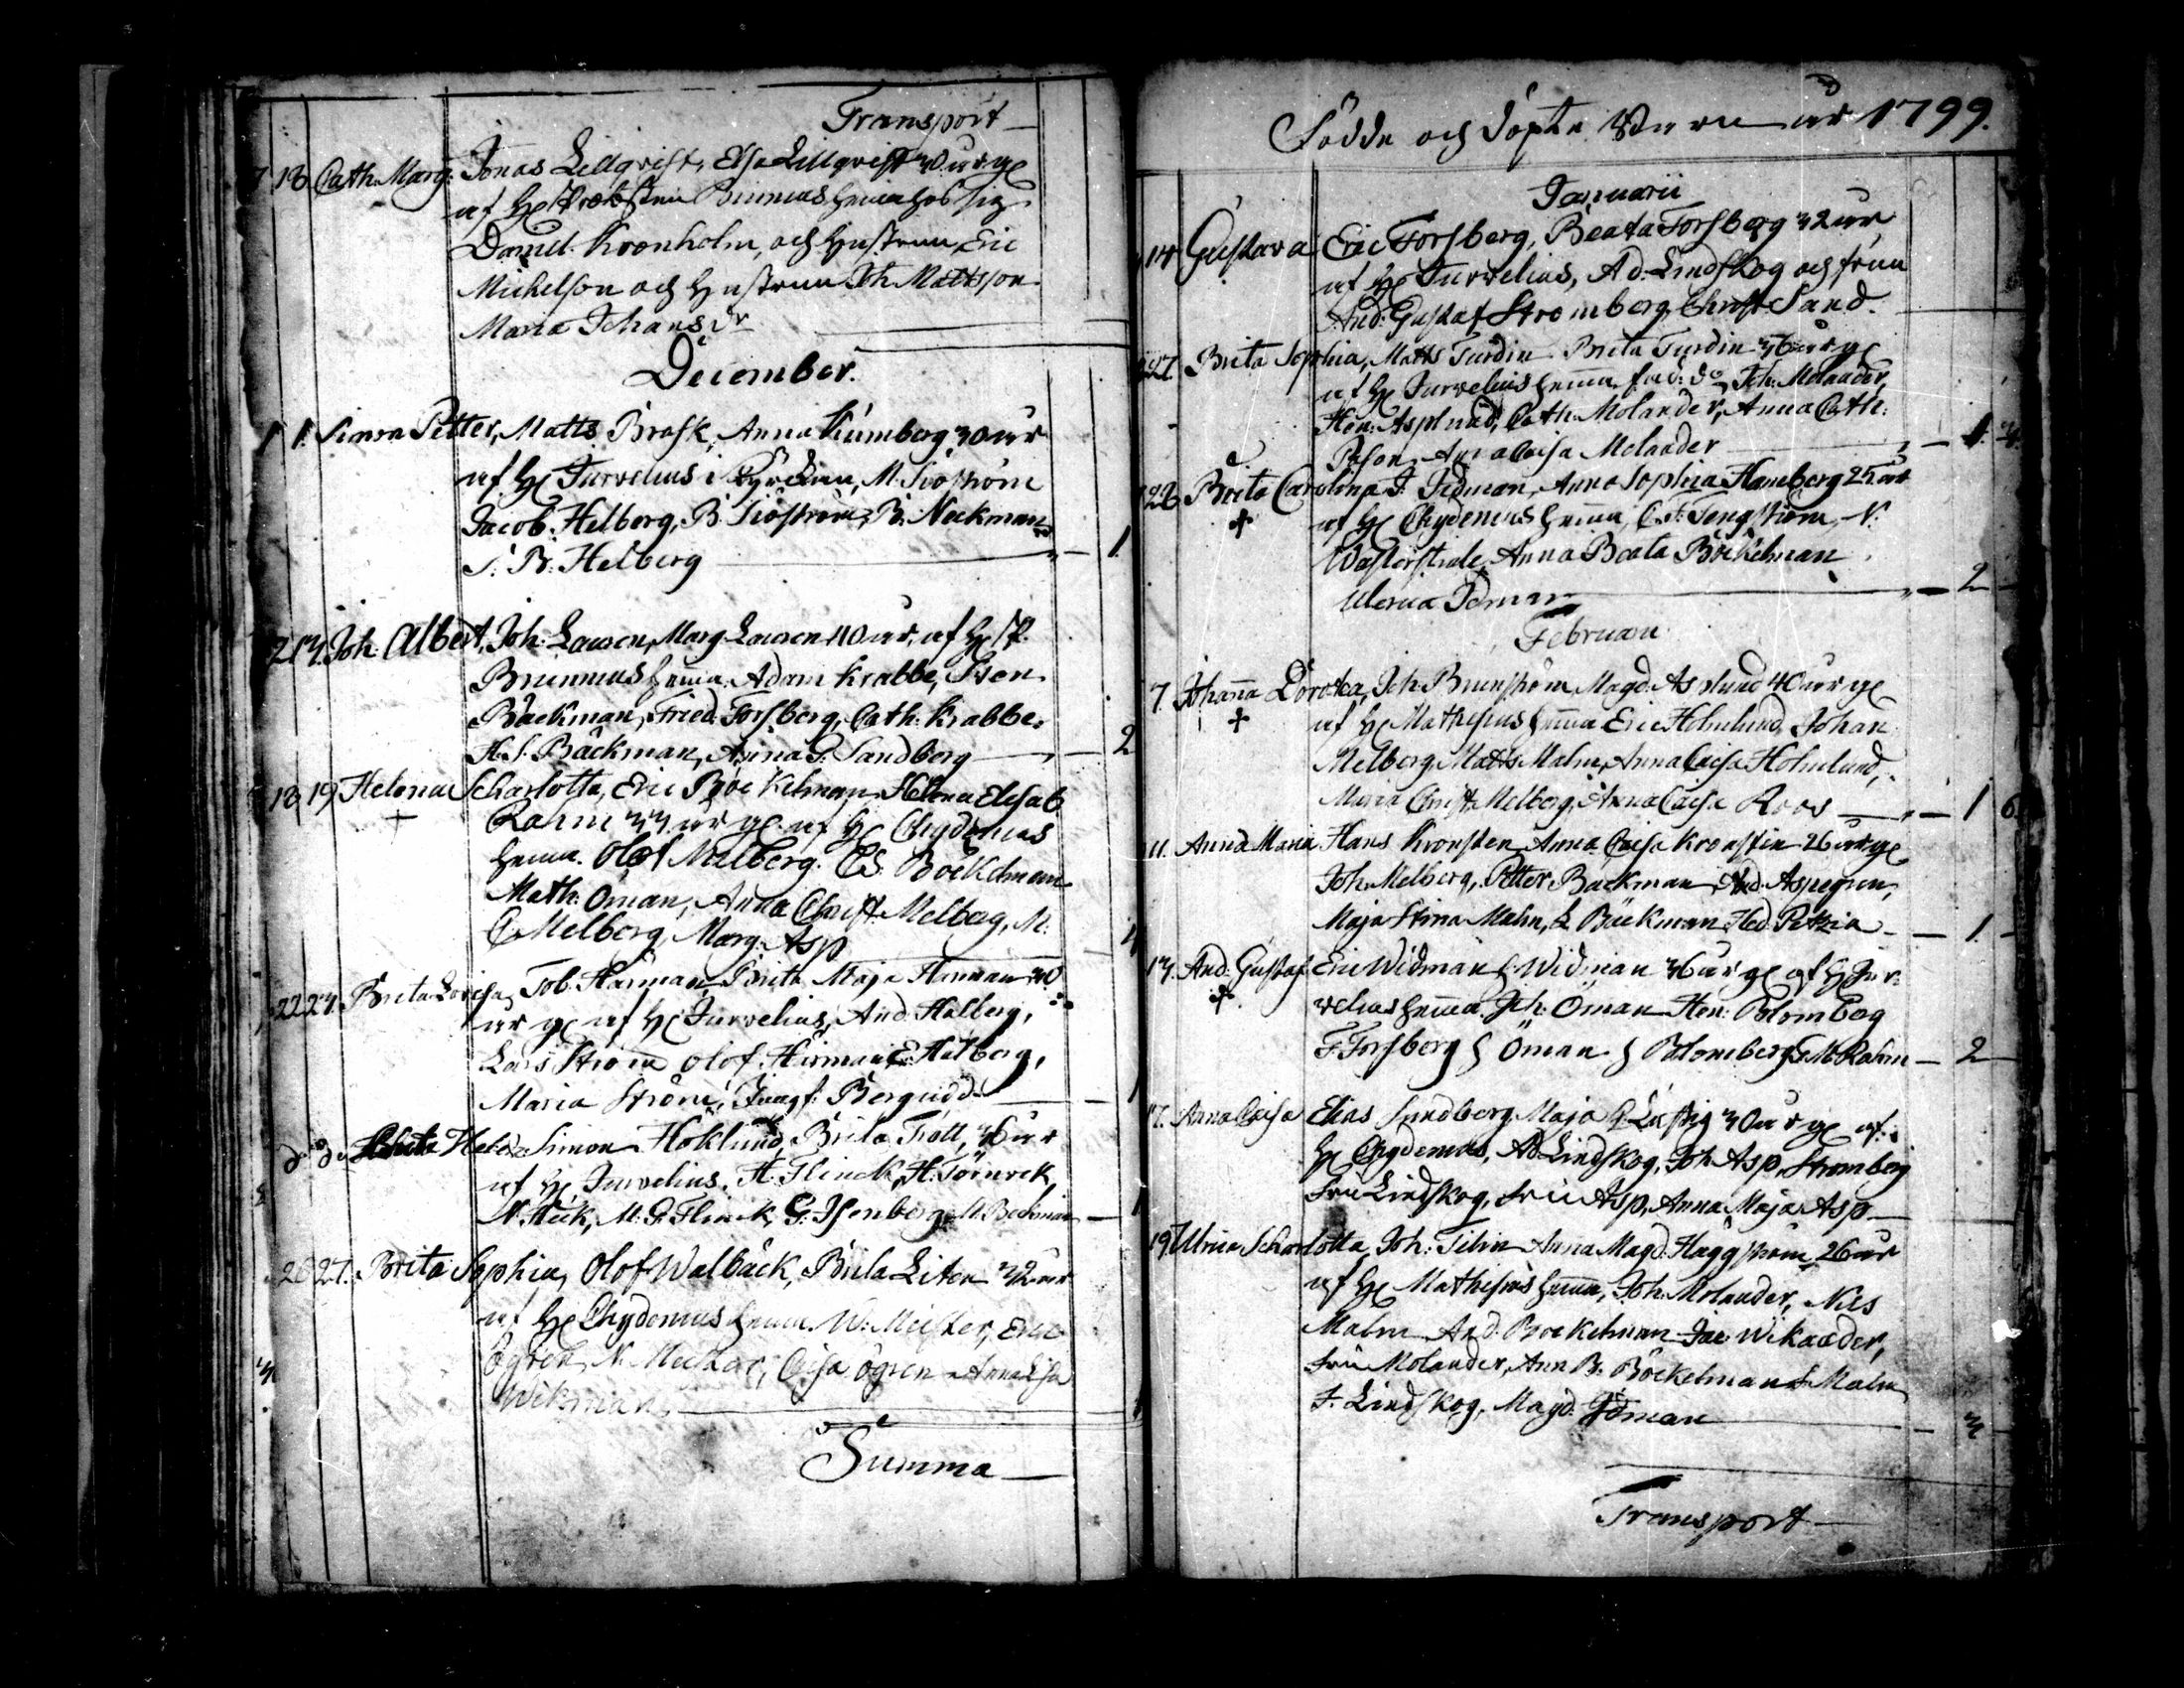 Transport
7 18 Cath. Marg: Jonas Lillqvist, Elsa Lillqvist 30 år ge
af H Probsten Brunnius hema hos sig
Daniel Kronholm, och hustrun, Eric
Michelson och Hustrun Joh. Mattsson
Maria Johansdr
December.
1 1. Simon Petter, Matts Brask, Anna Kumberg 30 år
af H Jurvelius i Kyrckan, M. Siöström
Jacob Helberg, B. Siöström, B. Neckman
S. B. Helberg — 1
2 3. Joh. Albert, Joh. Lawsen, Marg. Lawsen 40 år, af H P.
Brunnius hema. Adam Krabbe, Sven
Bäckman, Fried. Forsberg, Cath. Krabbe,
H. S. Bäckman, Anna G. Sandberg — 2
18 19 Helena Scharlotta, Eric Böckelman, Helena Elisab
Rahm 33 år ge. af H Chydenius
hema. Olof Melberg. Böckelman
Math. Öman, Anna Christ. Melberg, M.
C. Melberg, Marg. Asp
22 23. Brita Lovisa, Tob. Harman, Brita Maja Harman 30
år ge af H Jurvelius, And. Halberg,
Lars Ström Olof Harman E. Halberg,
Maria Ström, Jungf. Bergudd —
do do Helena Simon Höklund, Brita Trått, 36 år
af H Jurvelius. H. Flinck, H. Törnrek,
N. Heck, M. G. Flinck, G. Isenberg, M. Beckman — 1
26 27. Brita Sophia, Olof Walbäck, Brita Liten 32 år
af H Chydenius hema. W. Meister, Eric
Ögren, N. Meister, Caisa Ögren Anna Lisa
Wikman,
Summa —
Födde och döpte Barn år 1799.
Januarii
14 Gustava Eric Forsberg, Beata Forsberg 32 år
af H Jurvelius, Ad. Lindskog och fru
And. Gustaf Strömberg, Christ Sand.
27. Brita Sophia, Matts Turdin Brita Turdin 36 år ge
af H Jurvelius hema. fad: do Joh. Molander,
Hen. Asplund, Cath. Molander, Anna Cath.
Anna Caisa Molander — 1. 3.
28 Brita Carolina J. Idman, Anna Sophia Hamberg 25 år
+ af H Chydenius hema, C. F. Tengström, N.
Anna Beata Böckelman
Ulrica Idman — 2
Februarii
7. Johanna Dorotea, Joh. Brunström Magd. Asplund 40 år ge
+ af H Mathesius hema Eric Holmlund, Johan
Melberg, Matts Malm, Anna Caisa Holmlund,
Maria Christ. Melberg, Anna Caisa Roos — 1 6
11. Anna Maria Hans Kronsten Anna Caisa Kronsten 26 år ge
Joh. Melberg, Petter Backman, And. Aspegren,
Maja Stina Malm, L. Bäckman Hed. Petzia — 1. —
13. And. Gustaf Eric Widman H Widman 36 år ge af H Jur-
+ velius hema. Joh. Öman Hen. Blomberg
F. Forsberg H Öman H Blomberg, M. Rahm — 2
17. Anna Caisa Elias Sundberg, Maja L. Lustig 30 år ge af
H Chydenius, Ad. Lindskog, Joh Asp, Strömberg
Fru Lindskog, Fru Asp, Anna Maja Asp —
19. Ulrica Scharlotta, Joh: Tilin Anna Magd. Häggström 26 år
af H Mathesius hema, Joh. Molander, Nils
Malm And. Böckelman Jac. Wikander,
Fru Molander, Ann B. Böckelman F. Malm
F. Lindskog, Magd. Idman — 3
Transport —